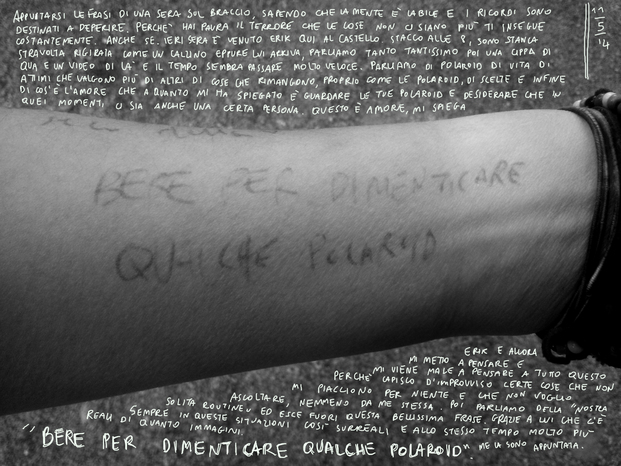 APPUNTARSI LE FRASI DI UNA SERA SUL BRACCIO, SAPENDO CHE LA MENTE È LABILE E I RICORDI SONO
DESTINATI A DEPERIRE. PERCHÈ HAI PAURA IL TERRORE CHE LE COSE NON CI SIANO PIÙ TI INSEGUE
COSTANTEMENTE. ANCHE SE. IERI SERA È VENUTO ERIK QUI AL CASTELLO. STACCO ALLE 8, SONO STANCA
STRAVOLTA RIGIRATA COME UN CALZINO EPPURE LUI ARRIVA. PARLIAMO TANTO TANTISSIMO POI UNA CIPPA DI
QUA E UN VIDEO DI LÀ E IL TEMPO SEMBRA PASSARE MOLTO VELOCE. PARLIAMO DI POLAROID DI VITA DI
ATTIMI CHE VALGONO PIÙ DI ALTRI DI COSE CHE RIMANGONO, PROPRIO COME LE POLAROID, DI SCELTE E INFINE
DI COS'È L'AMORE CHE A QUANTO MI HA SPIEGATO È GUARDARE LE TUE POLAROID E DESIDERARE CHE IN
QUEI MOMENTI CI SIA ANCHE UNA CERTA PERSONA. QUESTO È AMORE, MI SPIEGA
11
5
14
BERE PER DIMENTICARE
QUALCHE POLAROID
ERIK E ALLORA
MI METTO A PENSARE E
MI VIENE MALE A PENSARE A TUTTO QUESTO
PERCHÈ CAPISCO D'IMPROVVISO CERTE COSE CHE NON
MI PIACCIONO PER NIENTE E CHE NON VOGLIO
ASCOLTARE, NEMMENO DA ME STESSA. POI PARLIAMO DELLA "NOSTRA
SOLITA ROUTINE" ED ESCE FUORI QUESTA BELLISSIMA FRASE. GRAZIE A LUI CHE C'È
SEMPRE IN QUESTE SITUAZIONI COSÌ SURREALI E ALLO STESSO TEMPO MOLTO PIÙ
REALI DI QUANTO IMMAGINI.
"BERE PER DIMENTICARE QUALCHE POLAROID". ME LA SONO APPUNTATA.